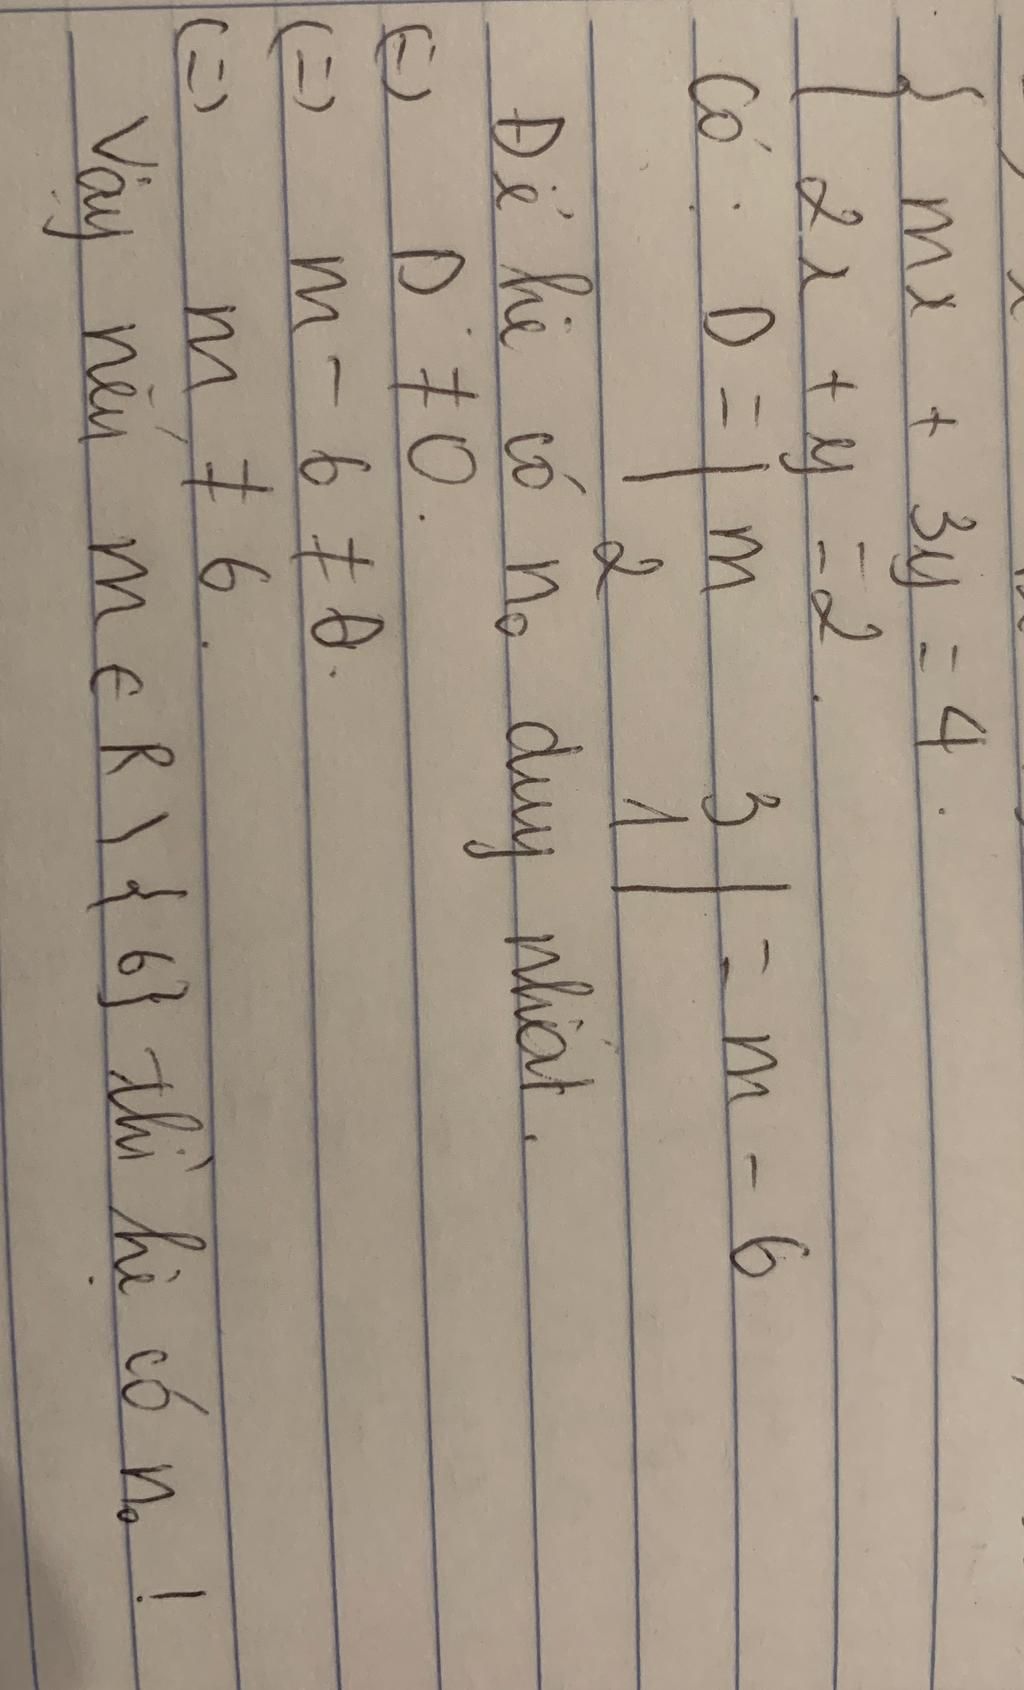 { mx + 3y = 4.
2x + y = 2.
Có: D = | m 3 | = m - 6
2 1
Để hệ có no duy nhất.
(=) D ≠ 0.
(=) m - 6 ≠ 0.
(=) m ≠ 6.
Vậy nếu m ∈ R \ {6} thì hệ có no !